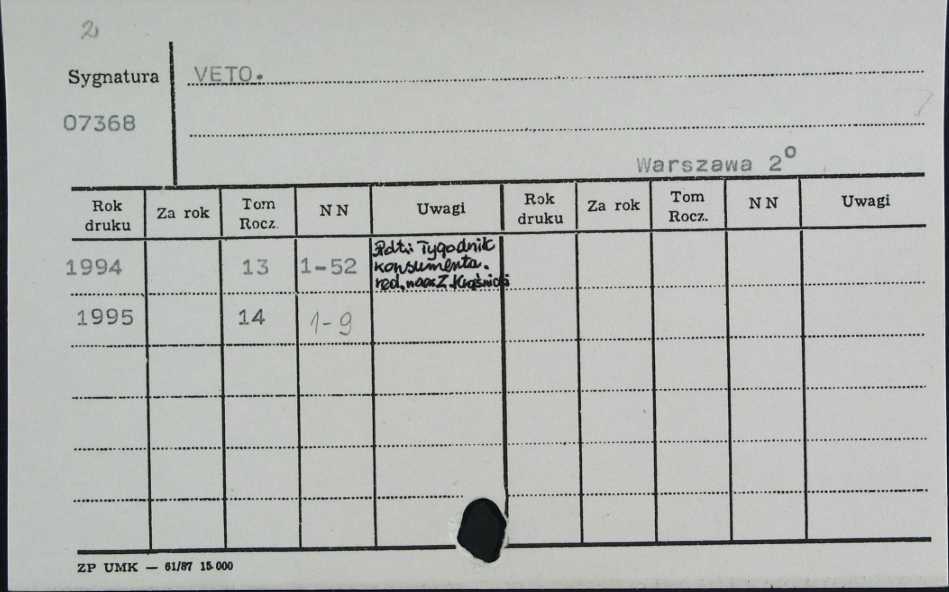 2
Sygnatura VETO.
07368
Warszawa 2°
Rok druku Za rok Tom Rocz. NN Uwagi Rok druku Za rok Tom Rocz. NN Uwagi
1994 13 1-52 Pdt: Tygodnik
konsumenta.
red. nacz Z.
1995 14 1-9
ZP UMK — 61/87 15.000